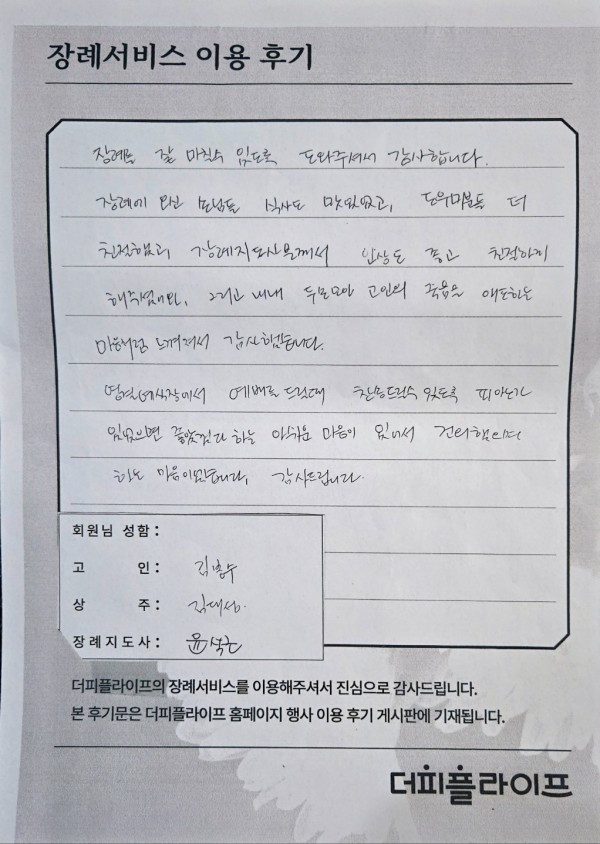 장례서비스 이용 후기
장례를 잘 마칠수 있도록 도와주셔서 감사합니다.
장례에 오신 손님들 식사도 맛있었고, 도우미분들 더
친절했고 장례지도사분께서 인상도 좋고 친절하게
해주셨으며, 그리고 내내 부모모양 고인의 죽음을 애도하는
마음처럼 느껴져서 감사했습니다.
영결예식장에서 예배를 드릴때 찬송드릴수 있도록 피아노가
있었으면 좋았겠다 하는 아쉬운 마음이 있어서 건의했으면
하는 마음이었습니다, 감사드립니다.
회원님 성함 :
고 인 : 김
상 주 : 김대성
장례지도사 : 윤석근
더피플라이프의 장례서비스를 이용해주셔서 진심으로 감사드립니다.
본 후기문은 더피플라이프 홈페이지 행사 이용 후기 게시판에 기재됩니다.
더피플라이프